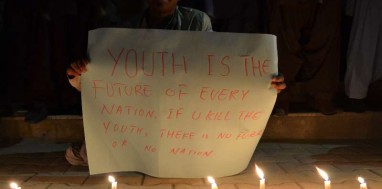 YOUTH IS THE
FUTURE OF EVERY
NATION, IF U KILL THE
YOUTH, THERE IS NO
OR NO NATION.